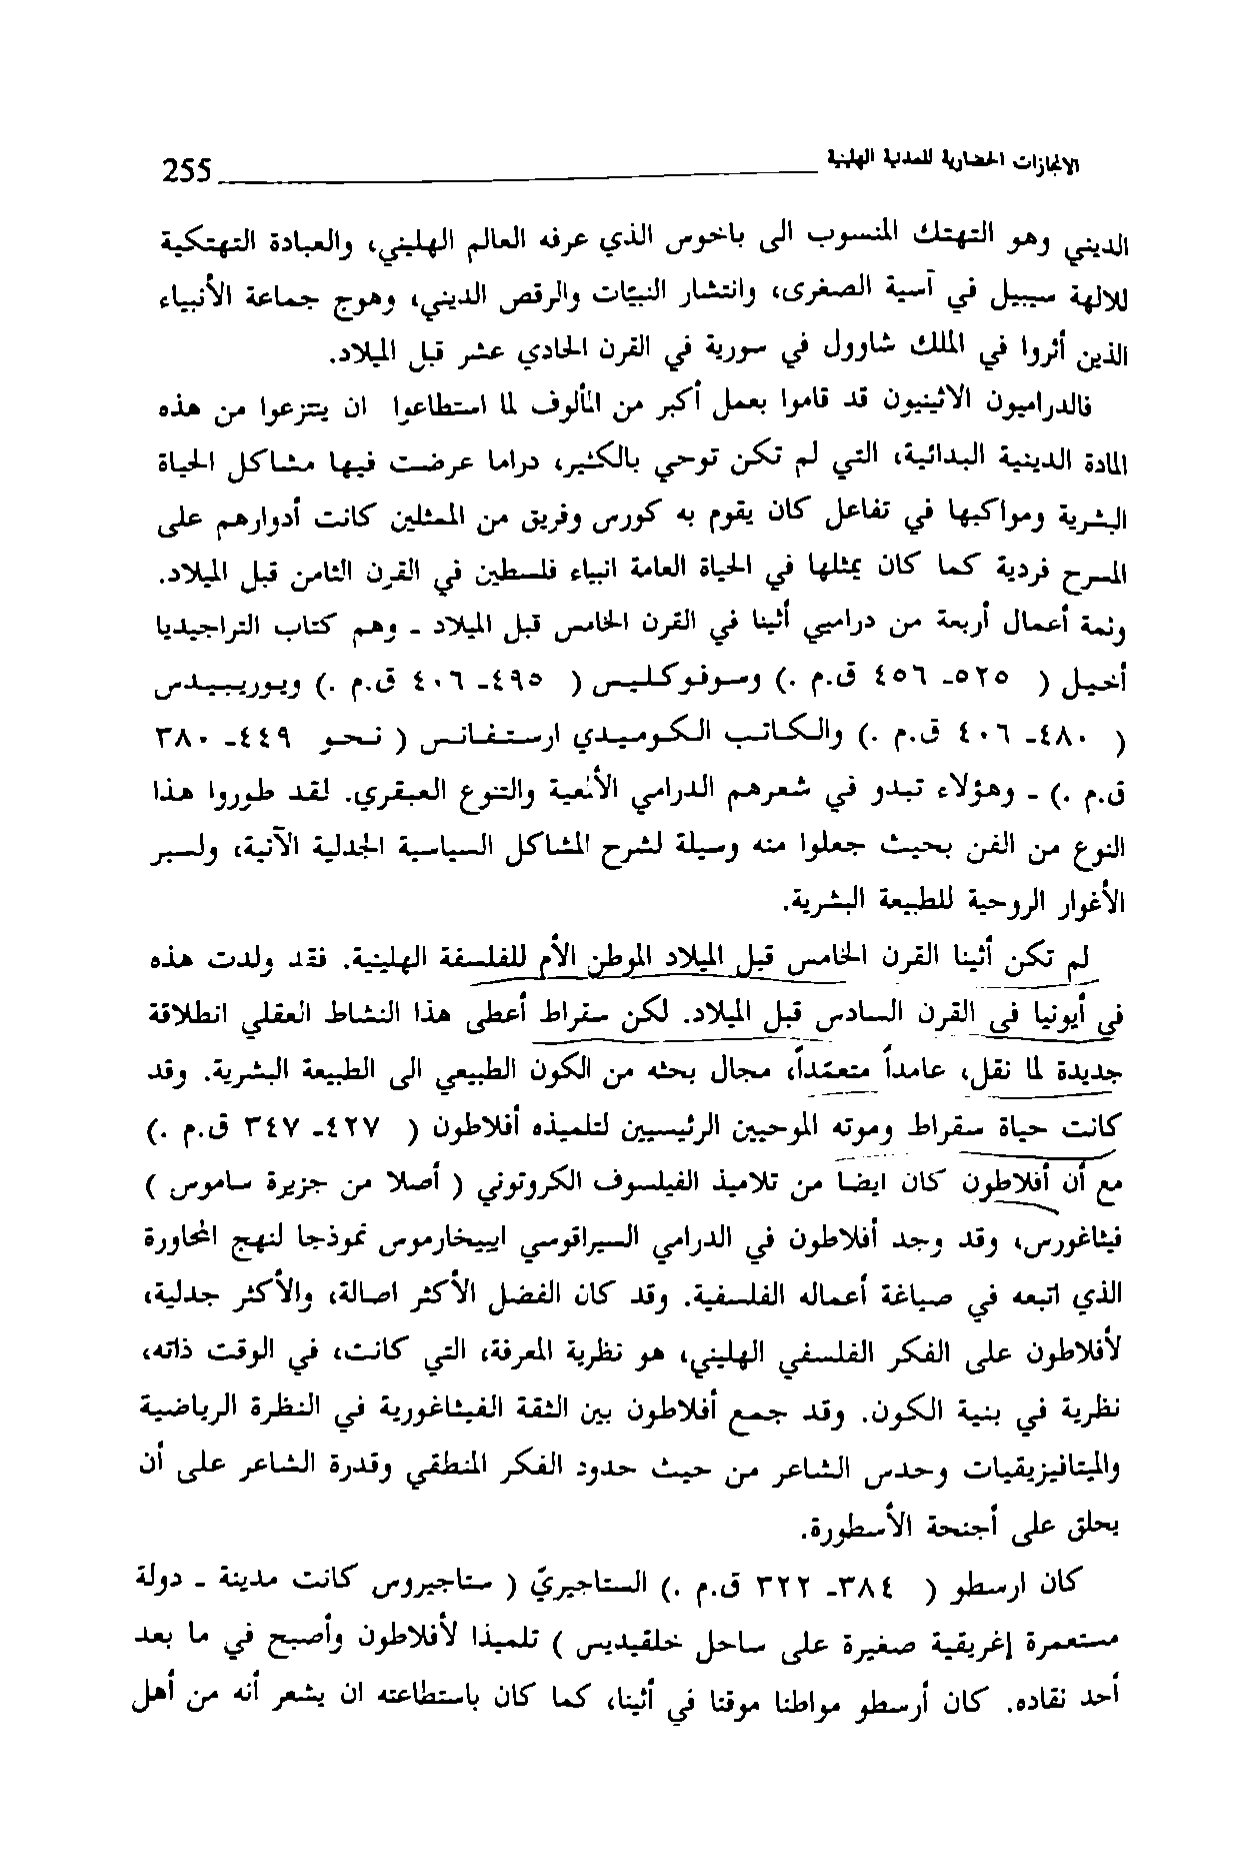 الانجازات الحضارية للمدنية الهلينية 255
الديني وهو التهتك المنسوب الى باخوس الذي عرفه العالم الهليني، والعبادة التهتكية
للالهة سيبيل في آسية الصغرى، وانتشار النبيّات والرقص الديني، وهوج جماعة الأنبياء
الذين أثروا في الملك شاوول في سورية في القرن الحادي عشر قبل الميلاد.
فالدراميون الاثينيون قد قاموا بعمل أكبر من المألوف لما استطاعوا ان ينتزعوا من هذه
المادة الدينية البدائية، التي لم تكن توحي بالكثير، دراما عرضت فيها مشاكل الحياة
البشرية ومواكبها في تفاعل كان يقوم به كورس وفريق من الممثلين كانت أدوارهم على
المسرح فردية كما كان يمثلها في الحياة العامة انبياء فلسطين في القرن الثامن قبل الميلاد.
وثمة أعمال أربعة من دراميي أثينا في القرن الخامس قبل الميلاد - وهم كتاب التراجيديا
أخيل ( ٥٢٥- ٤٥٦ ق.م .) وسوفوكليس ( ٤٩٥- ٤٠٦ ق.م .) ويوريبيدس
( ٤٨٠- ٤٠٦ ق.م .) والكاتب الكوميدي ارستفانس ( نحو ٤٤٩- ٣٨٠
ق.م .) - وهؤلاء تبدو في شعرهم الدرامي الألمعية والتنوع العبقري. لقد طوروا هذا
النوع من الفن بحيث جعلوا منه وسيلة لشرح المشاكل السياسية الجدلية الآنية، ولسبر
الأغوار الروحية للطبيعة البشرية.
لم تكن أثينا القرن الخامس قبل الميلاد الموطن الأم للفلسفة الهلينية. فقد ولدت هذه
في أيونيا في القرن السادس قبل الميلاد. لكن سقراط أعطى هذا النشاط العقلي انطلاقة
جديدة لما نقل، عامداً متعمّداً، مجال بحثه من الكون الطبيعي الى الطبيعة البشرية. وقد
كانت حياة سقراط وموته الموحيين الرئيسيين لتلميذه أفلاطون ( ٤٢٧- ٣٤٧ ق.م .)
مع أن أفلاطون كان ايضا من تلاميذ الفيلسوف الكروتوني ( أصلا من جزيرة ساموس )
فيثاغورس، وقد وجد أفلاطون في الدرامي السيراقوسي ايبيخارموس نموذجا لنهج المحاورة
الذي اتبعه في صياغة أعماله الفلسفية. وقد كان الفضل الأكثر اصالة، والأكثر جدلية،
لأفلاطون على الفكر الفلسفي الهليني، هو نظرية المعرفة، التي كانت، في الوقت ذاته،
نظرية في بنية الكون. وقد جمع أفلاطون بين الثقة الفيثاغورية في النظرة الرياضية
والميتافيزيقيات وحدس الشاعر من حيث حدود الفكر المنطقي وقدرة الشاعر على أن
يحلق على أجنحة الأسطورة.
كان ارسطو ( ٣٨٤- ٣٢٢ ق.م .) الستاجيريّ ( ستاجيروس كانت مدينة - دولة
مستعمرة إغريقية صغيرة على ساحل خلقيديس ) تلميذا لأفلاطون وأصبح في ما بعد
أحد نقاده. كان أرسطو مواطنا موقتا في أثينا، كما كان باستطاعته ان يشعر أنه من أهل